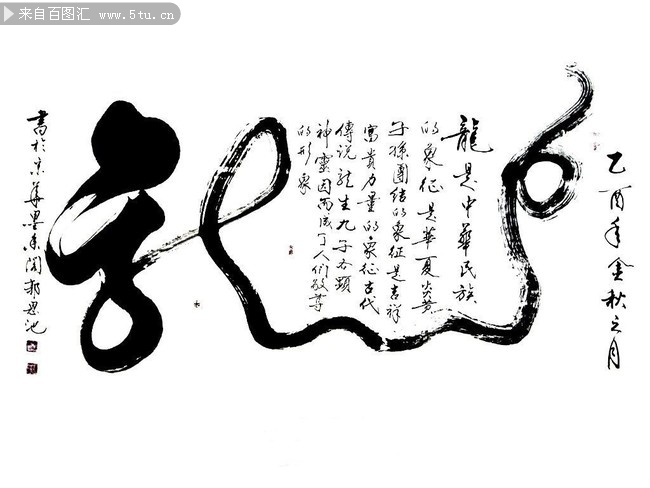 来自百图汇 www.5tu.cn
乙酉年金秋之月
龍
龍是中華民族
的象征是華夏炎黄
子孫團結的象征是吉祥
富貴力量的象征古代
傳说龙生九子各顯
神靈因而成了人们敬尊
的形象
書於京華墨香閣郭